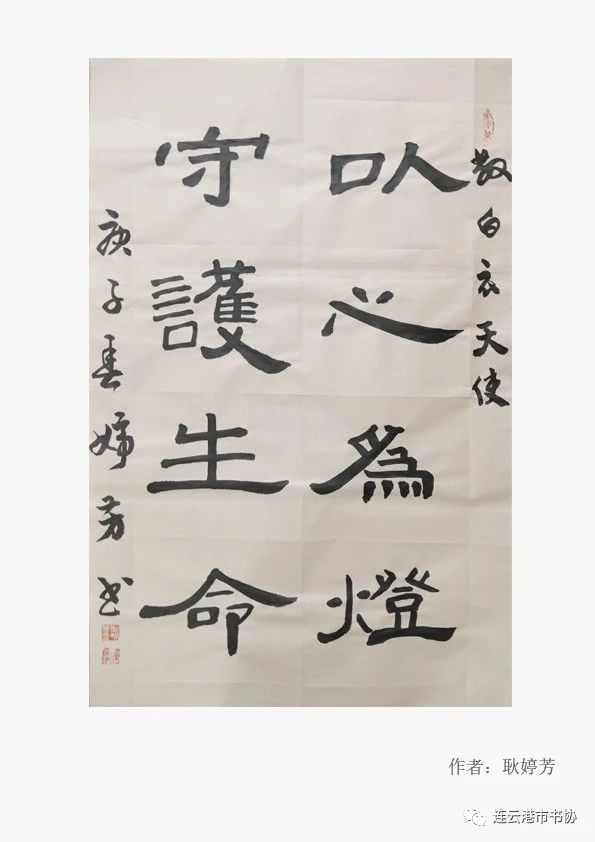 敬白衣天使
以心為燈
守護生命
庚子春婷芳书
作者：耿婷芳
连云港市书协